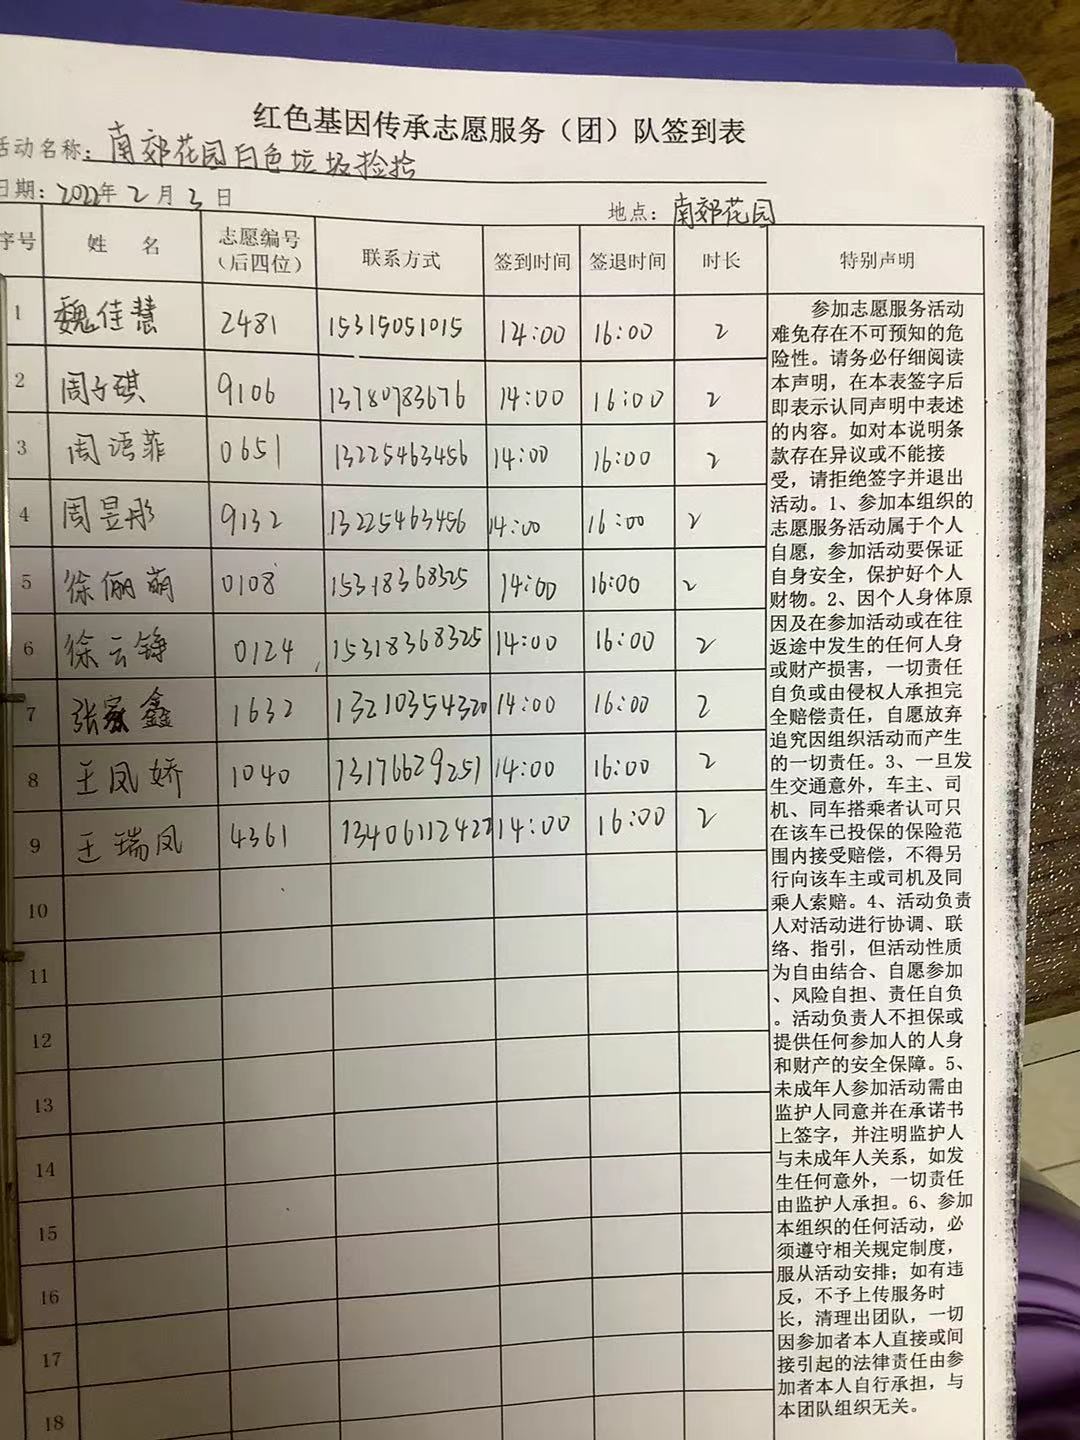 红色基因传承志愿服务（团）队签到表
活动名称：南郊花园白色垃圾捡拾
日期：2022年2月3日
地点：南郊花园
序号 姓 名 志愿编号（后四位） 联系方式 签到时间 签退时间 时长 特别声明
1 魏佳慧 2481 15315051015 14:00 16:00 2
2 周子琪 9106 13780783676 14:00 16:00 2
3 周语菲 0651 13225463456 14:00 16:00 2
4 周昱彤 9132 13225463456 14:00 16:00 2
5 徐俪萌 0108 15318368325 14:00 16:00 2
6 徐云铮 0124 15318368325 14:00 16:00 2
7 张家鑫 1632 13210354320 14:00 16:00 2
8 王凤娇 1040 13176629251 14:00 16:00 2
9 王瑞凤 4361 13406112427 14:00 16:00 2
10
11
12
13
14
15
16
17
18
参加志愿服务活动
难免存在不可预知的危
险性。请务必仔细阅读
本声明，在本表签字后
即表示认同声明中表述
的内容。如对本说明条
款存在异议或不能接
受，请拒绝签字并退出
活动。1、参加本组织的
志愿服务活动属于个人
自愿，参加活动要保证
自身安全，保护好个人
财物。2、因个人身体原
因及在参加活动或在往
返途中发生的任何人身
或财产损害，一切责任
自负或由侵权人承担完
全赔偿责任，自愿放弃
追究因组织活动而产生
的一切责任。3、一旦发
生交通意外，车主、司
机、同车搭乘者认可只
在该车已投保的保险范
围内接受赔偿，不得另
行向该车主或司机及同
乘人索赔。4、活动负责
人对活动进行协调、联
络、指引，但活动性质
为自由结合、自愿参加
、风险自担、责任自负
。活动负责人不担保或
提供任何参加人的人身
和财产的安全保障。5、
未成年人参加活动需由
监护人同意并在承诺书
上签字，并注明监护人
与未成年人关系，如发
生任何意外，一切责任
由监护人承担。6、参加
本组织的任何活动，必
须遵守相关规定制度，
服从活动安排；如有违
反，不予上传服务时
长，清理出团队，一切
因参加者本人直接或间
接引起的法律责任由参
加者本人自行承担，与
本团队组织无关。